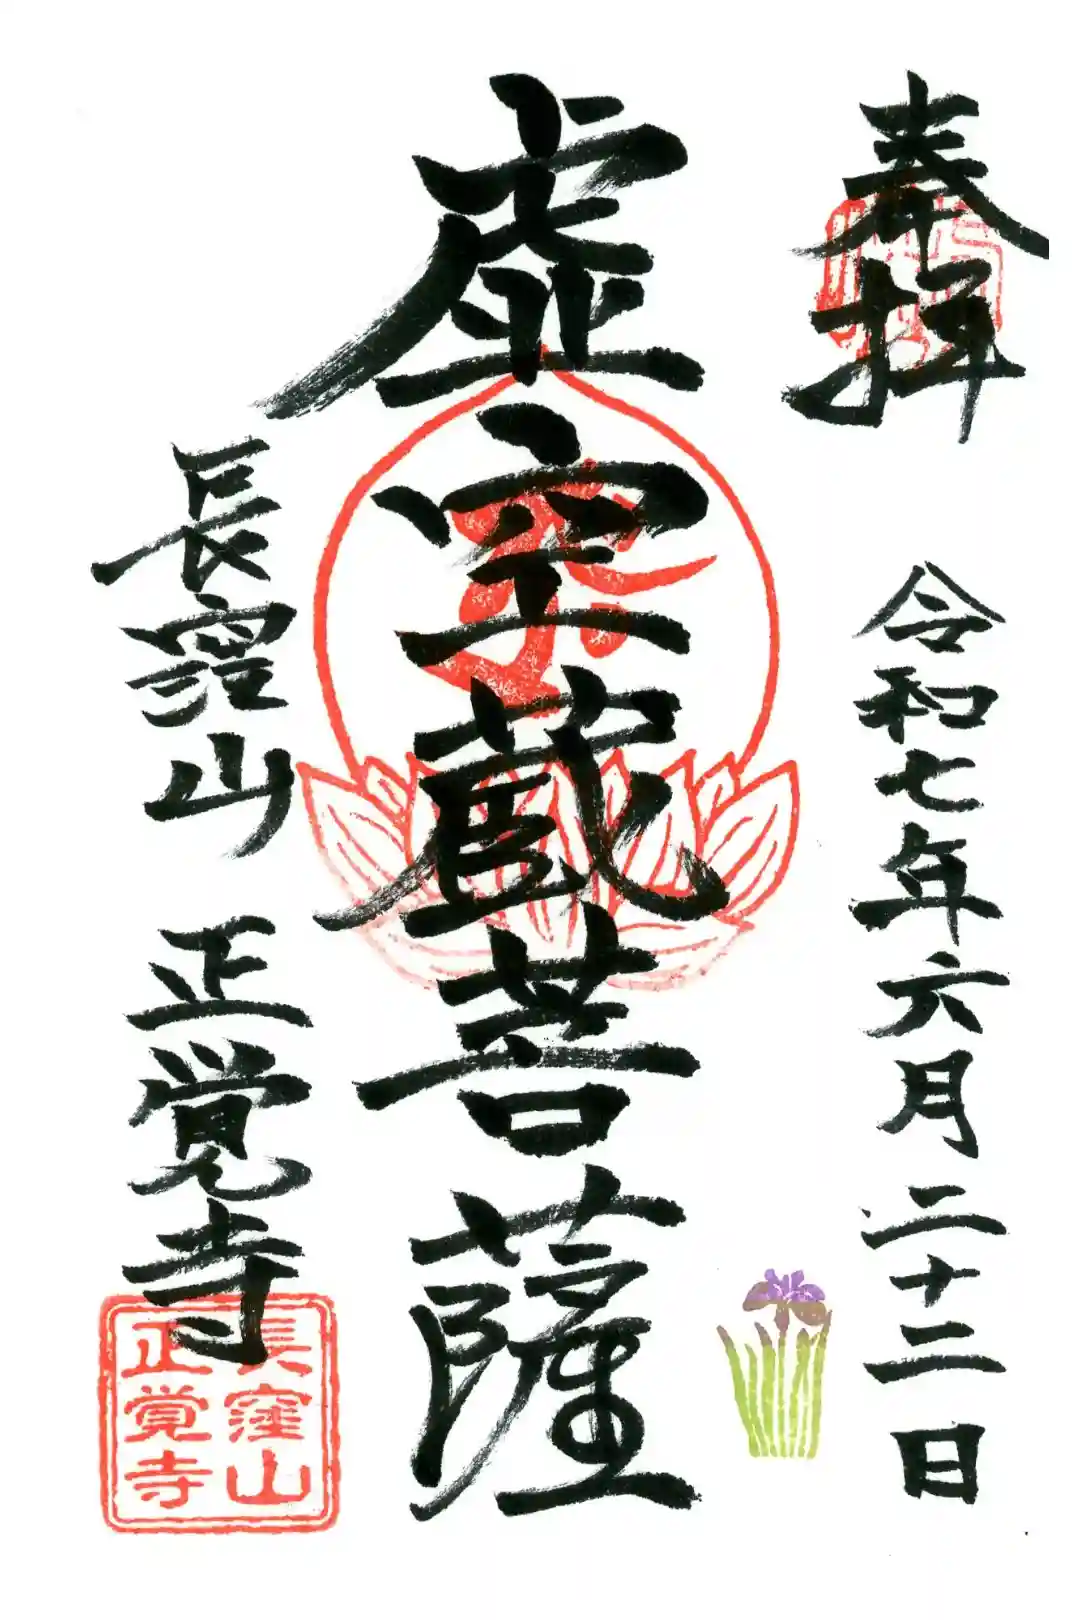 奉拝
令和七年六月二十二日
虚空蔵菩薩
長窪山 正覚寺
長窪山
正覚寺